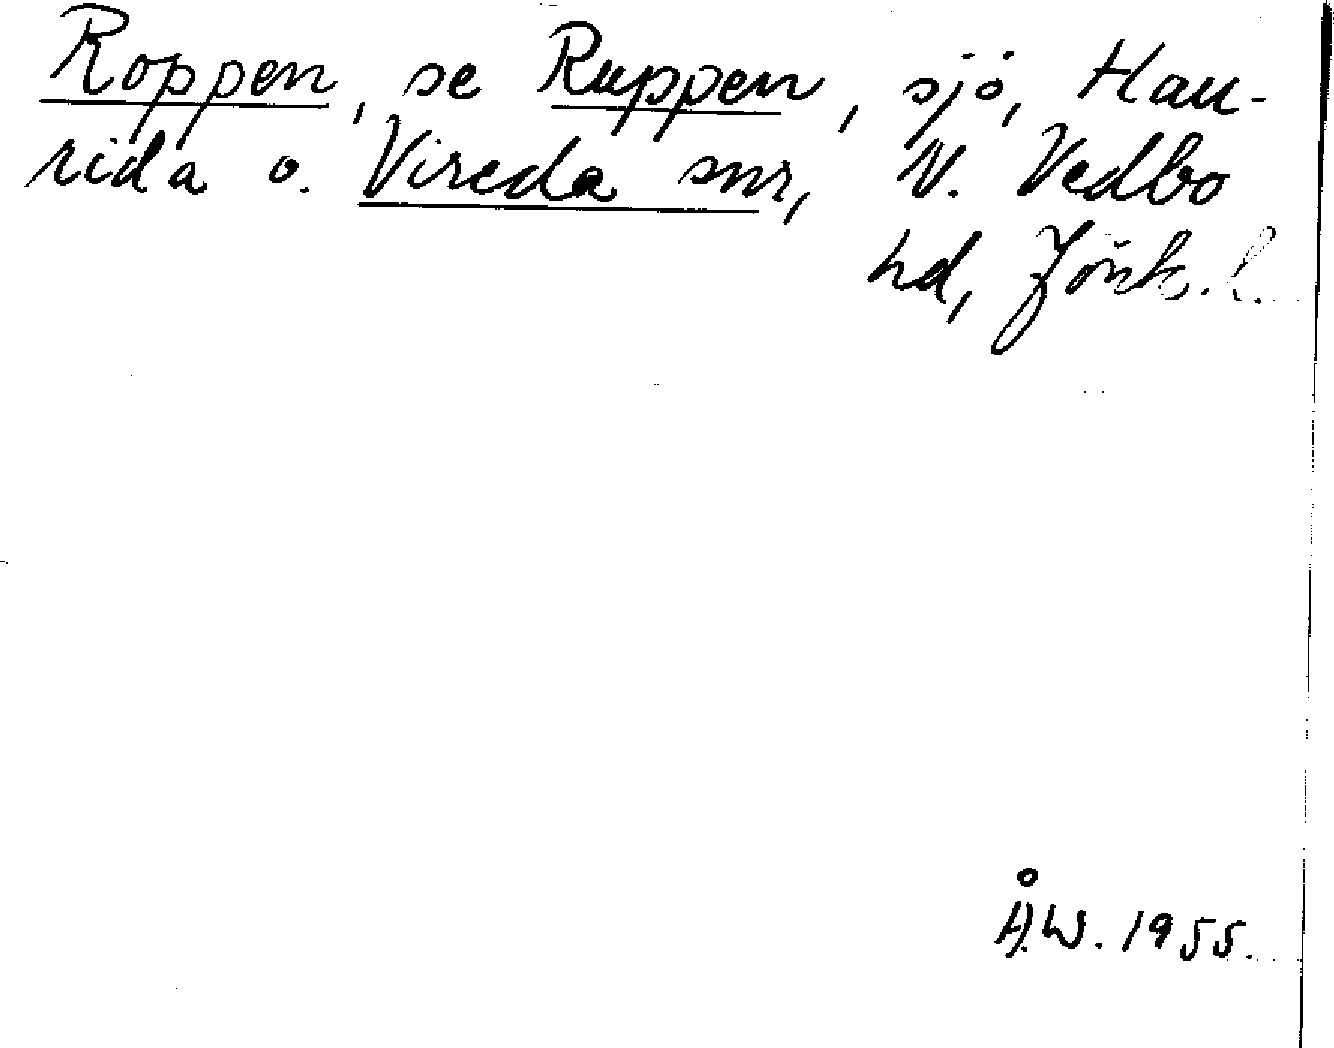 Roppen, se Ruppen, sjö, Hau-
rida o. Vireda snr, N. Vedbo
hd, Jönk. l.
Å.W. 1955.